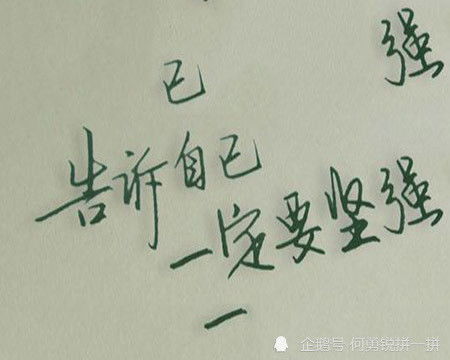 强
己
告诉自己
一定要坚强
一
企鹅号 何勇锐拼一拼